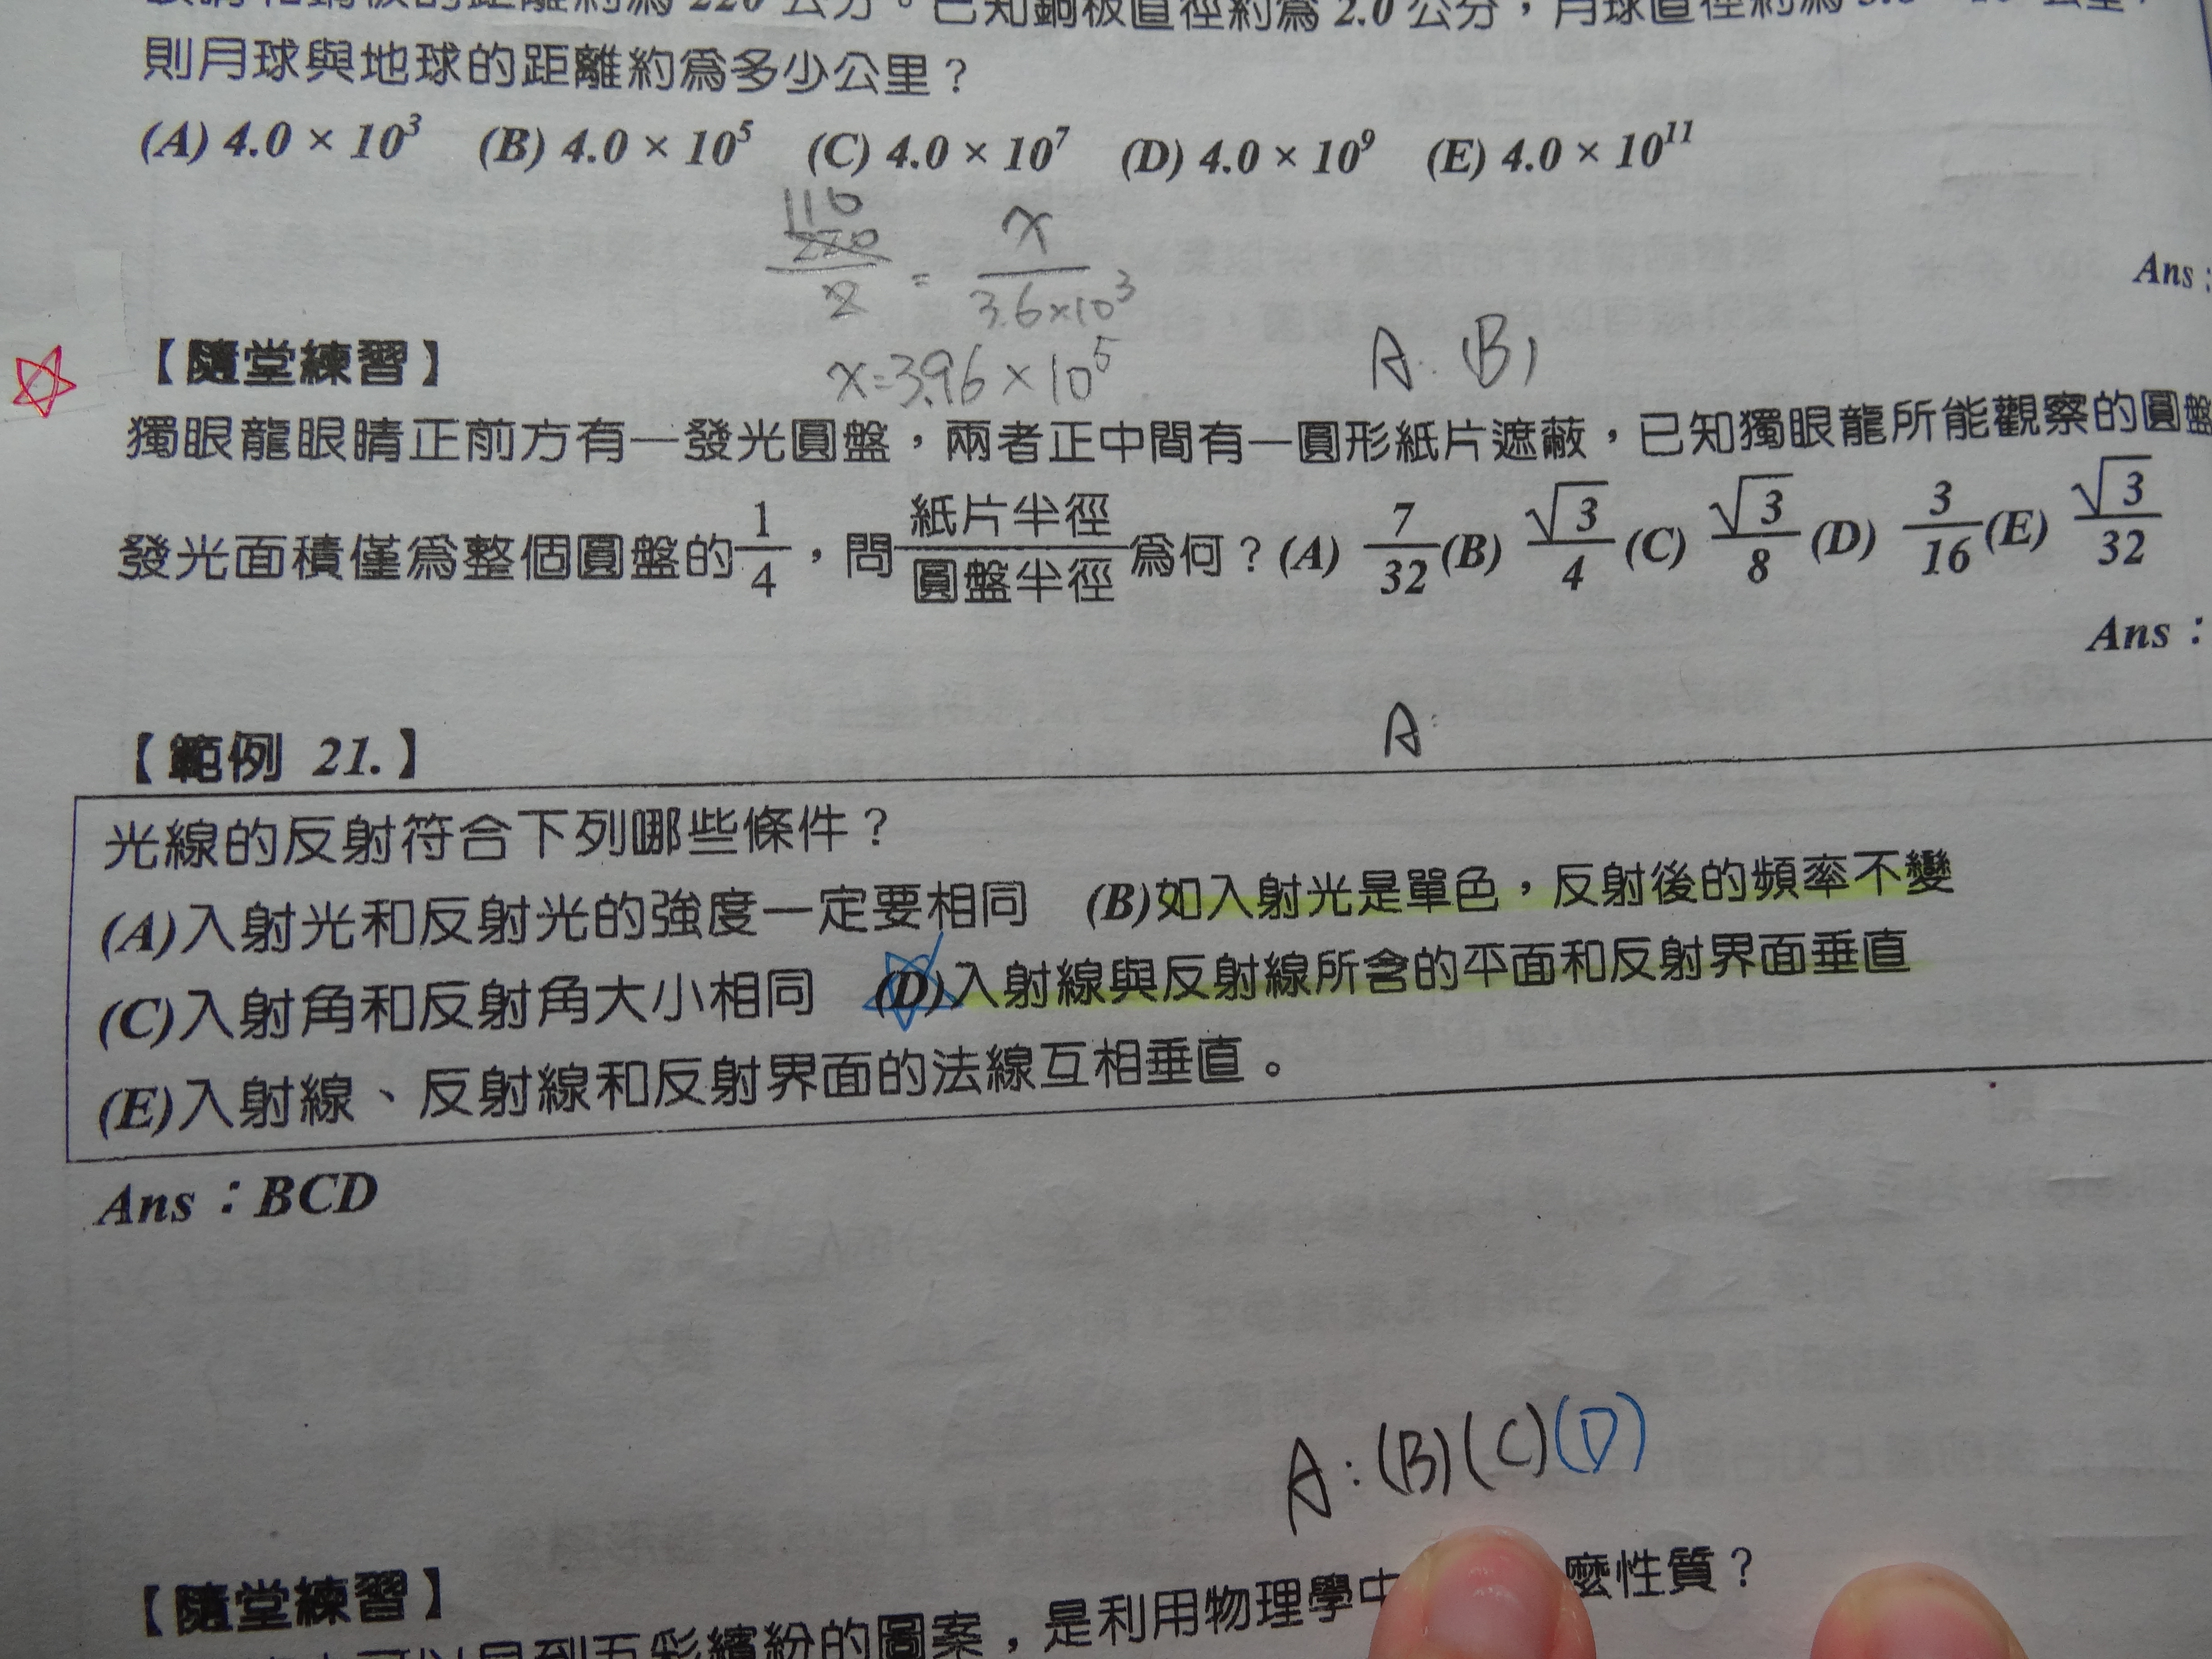 公分。已知銅板直徑約為 2.0 公分，月球直徑約為
則月球與地球的距離約為多少公里？
(A) 4.0 × 10³ (B) 4.0 × 10⁵ (C) 4.0 × 10⁷ (D) 4.0 × 10⁹ (E) 4.0 × 10¹¹
110
220/2 = x/3.6×10³
Ans：
x=3.96×10⁵
A：(B)
【隨堂練習】
獨眼龍眼睛正前方有一發光圓盤，兩者正中間有一圓形紙片遮蔽，已知獨眼龍所能觀察的圓盤
發光面積僅為整個圓盤的1/4，問紙片半徑/圓盤半徑為何？(A) 7/32 (B) √3/4 (C) √3/8 (D) 3/16 (E) √3/32
Ans：
A：
【範例 21.】
光線的反射符合下列哪些條件？
(A)入射光和反射光的強度一定要相同 (B)如入射光是單色，反射後的頻率不變
(C)入射角和反射角大小相同 (D)入射線與反射線所含的平面和反射界面垂直
(E)入射線、反射線和反射界面的法線互相垂直。
Ans：BCD
A：(B)(C)(D)
【隨堂練習】
可以見到五彩繽紛的圖案，是利用物理學中 麼性質？